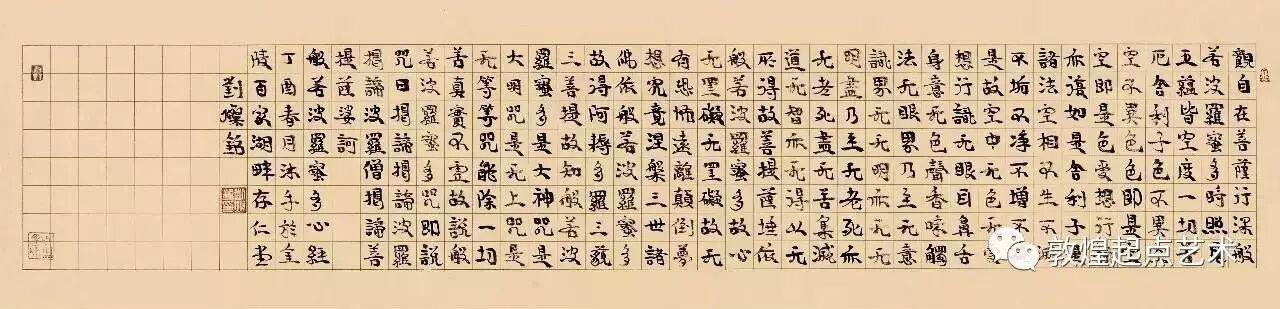 觀自在菩薩行深般
若波羅蜜多時照見
五蘊皆空度一切苦
厄舍利子色不異空
空不異色色即是空
空即是色受想行識
亦復如是舍利子是
諸法空相不生不滅
不垢不淨不增不減
是故空中无色无受
想行識无眼耳鼻舌
身意无色聲香味觸
法无眼界乃至无意
識界无无明亦无无
明盡乃至无老死亦
无老死盡无苦集滅
道无智亦无得以无
所得故菩提薩埵依
般若波羅蜜多故心
无罣礙无罣礙故无
有恐怖遠離顛倒夢
想究竟涅槃三世諸
佛依般若波羅蜜多
故得阿耨多羅三藐
三菩提故知般若波
羅蜜多是大神咒是
大明咒是无上咒是
无等等咒能除一切
苦真實不虛故說般
若波羅蜜多咒即說
咒曰揭諦揭諦波羅
揭諦波羅僧揭諦菩
提薩婆訶
般若波羅蜜多心經
丁酉春月沐手於金
陵百家湖畔存仁堂
劉燦銘
敦煌起点艺术